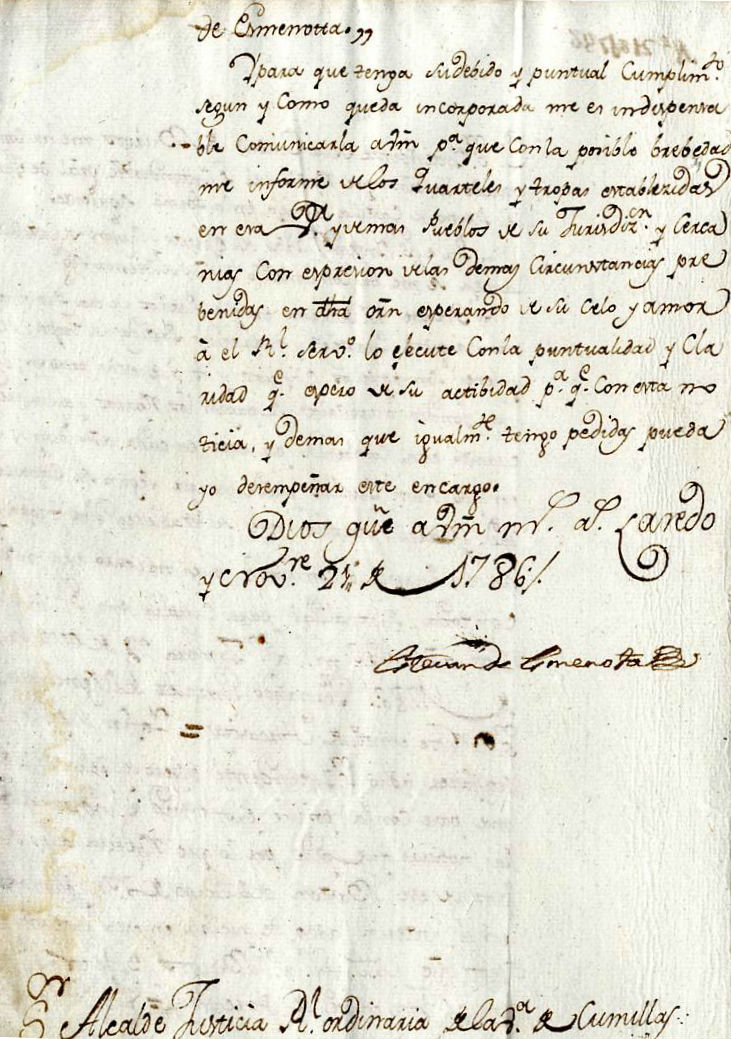 de Esmenotta.,,
Ypara que tenga su debido y puntual Cumplim.to
segun y Como queda incorporada me es indispensa
ble Comunicarla a Vm p.a que Con la posible brebedad
me informe de los Quarteles y tropas establezidas
en esa y demas Pueblos de su Jurisdiz.on y Cerca
nias Con espresion de las demas Circunstancias pre
benidas en dha orn esperando de su Celo y amor
â el R.l Serv.o lo ejecute Con la puntualidad y Cla
ridad q.e espero de su actibidad p.a q.e Con esta no
ticia, y demas que igualm.te tengo pedidas pueda
yo desempeñar este encargo.
Dios gue a Vm m.s a.s Laredo
y Nov.re 21 de 1786./.
Estevan de Esmenota
S.r Alcalde Justicia R.l ordinaria de la V.a de Cumillas: